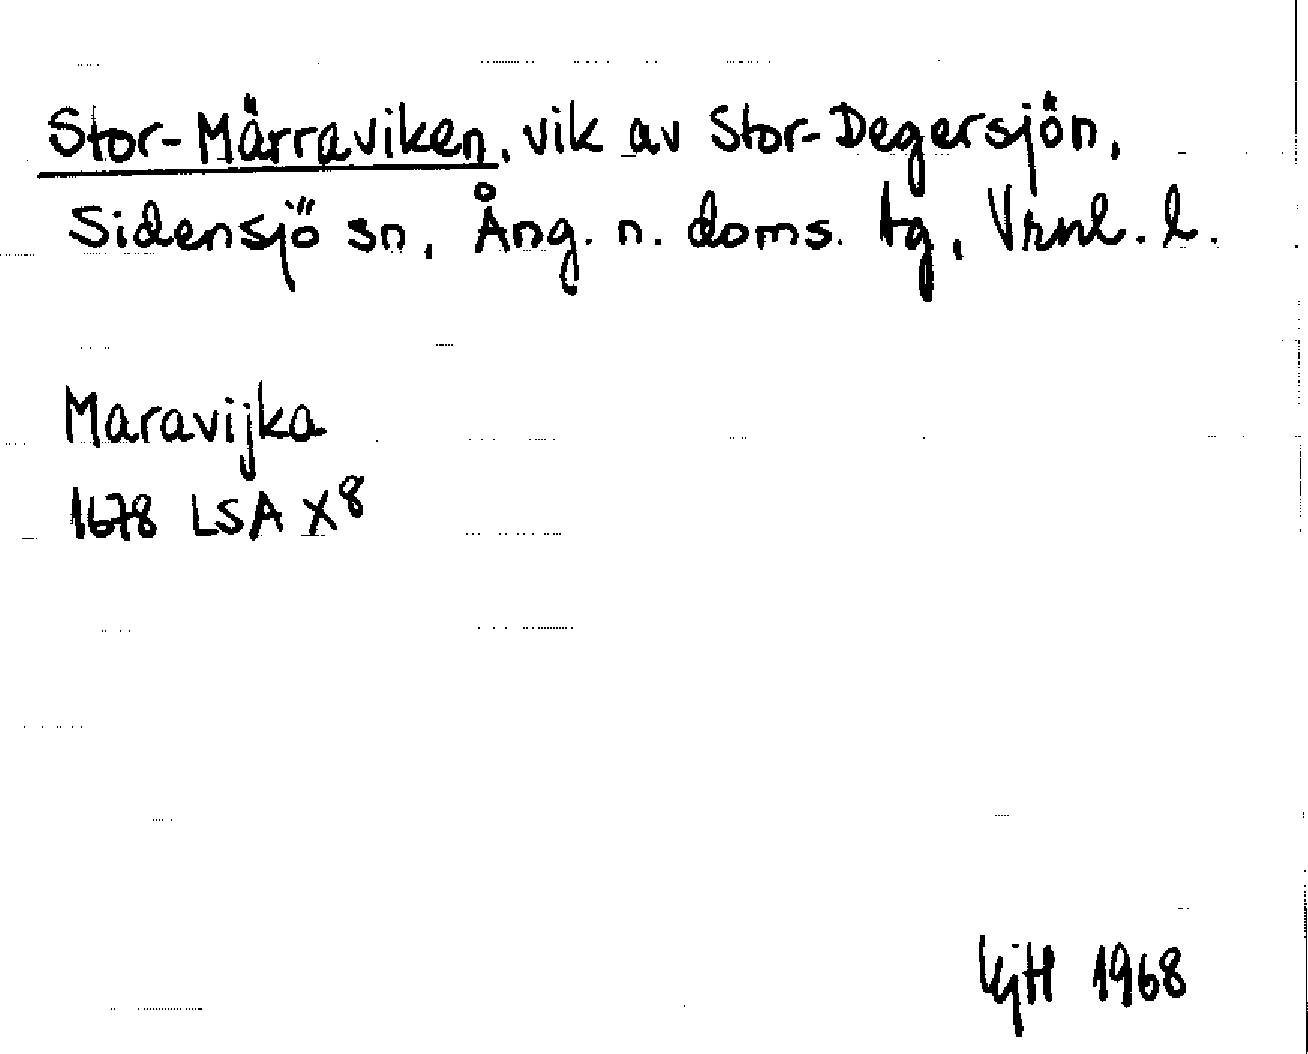 Stor-Märraviken, vik av Stor-Degersjön,
Sidensjö sn, Ång. n. doms. tg, Vrnl. l.
Maravijka
1678 LSA X8
KjH 1968